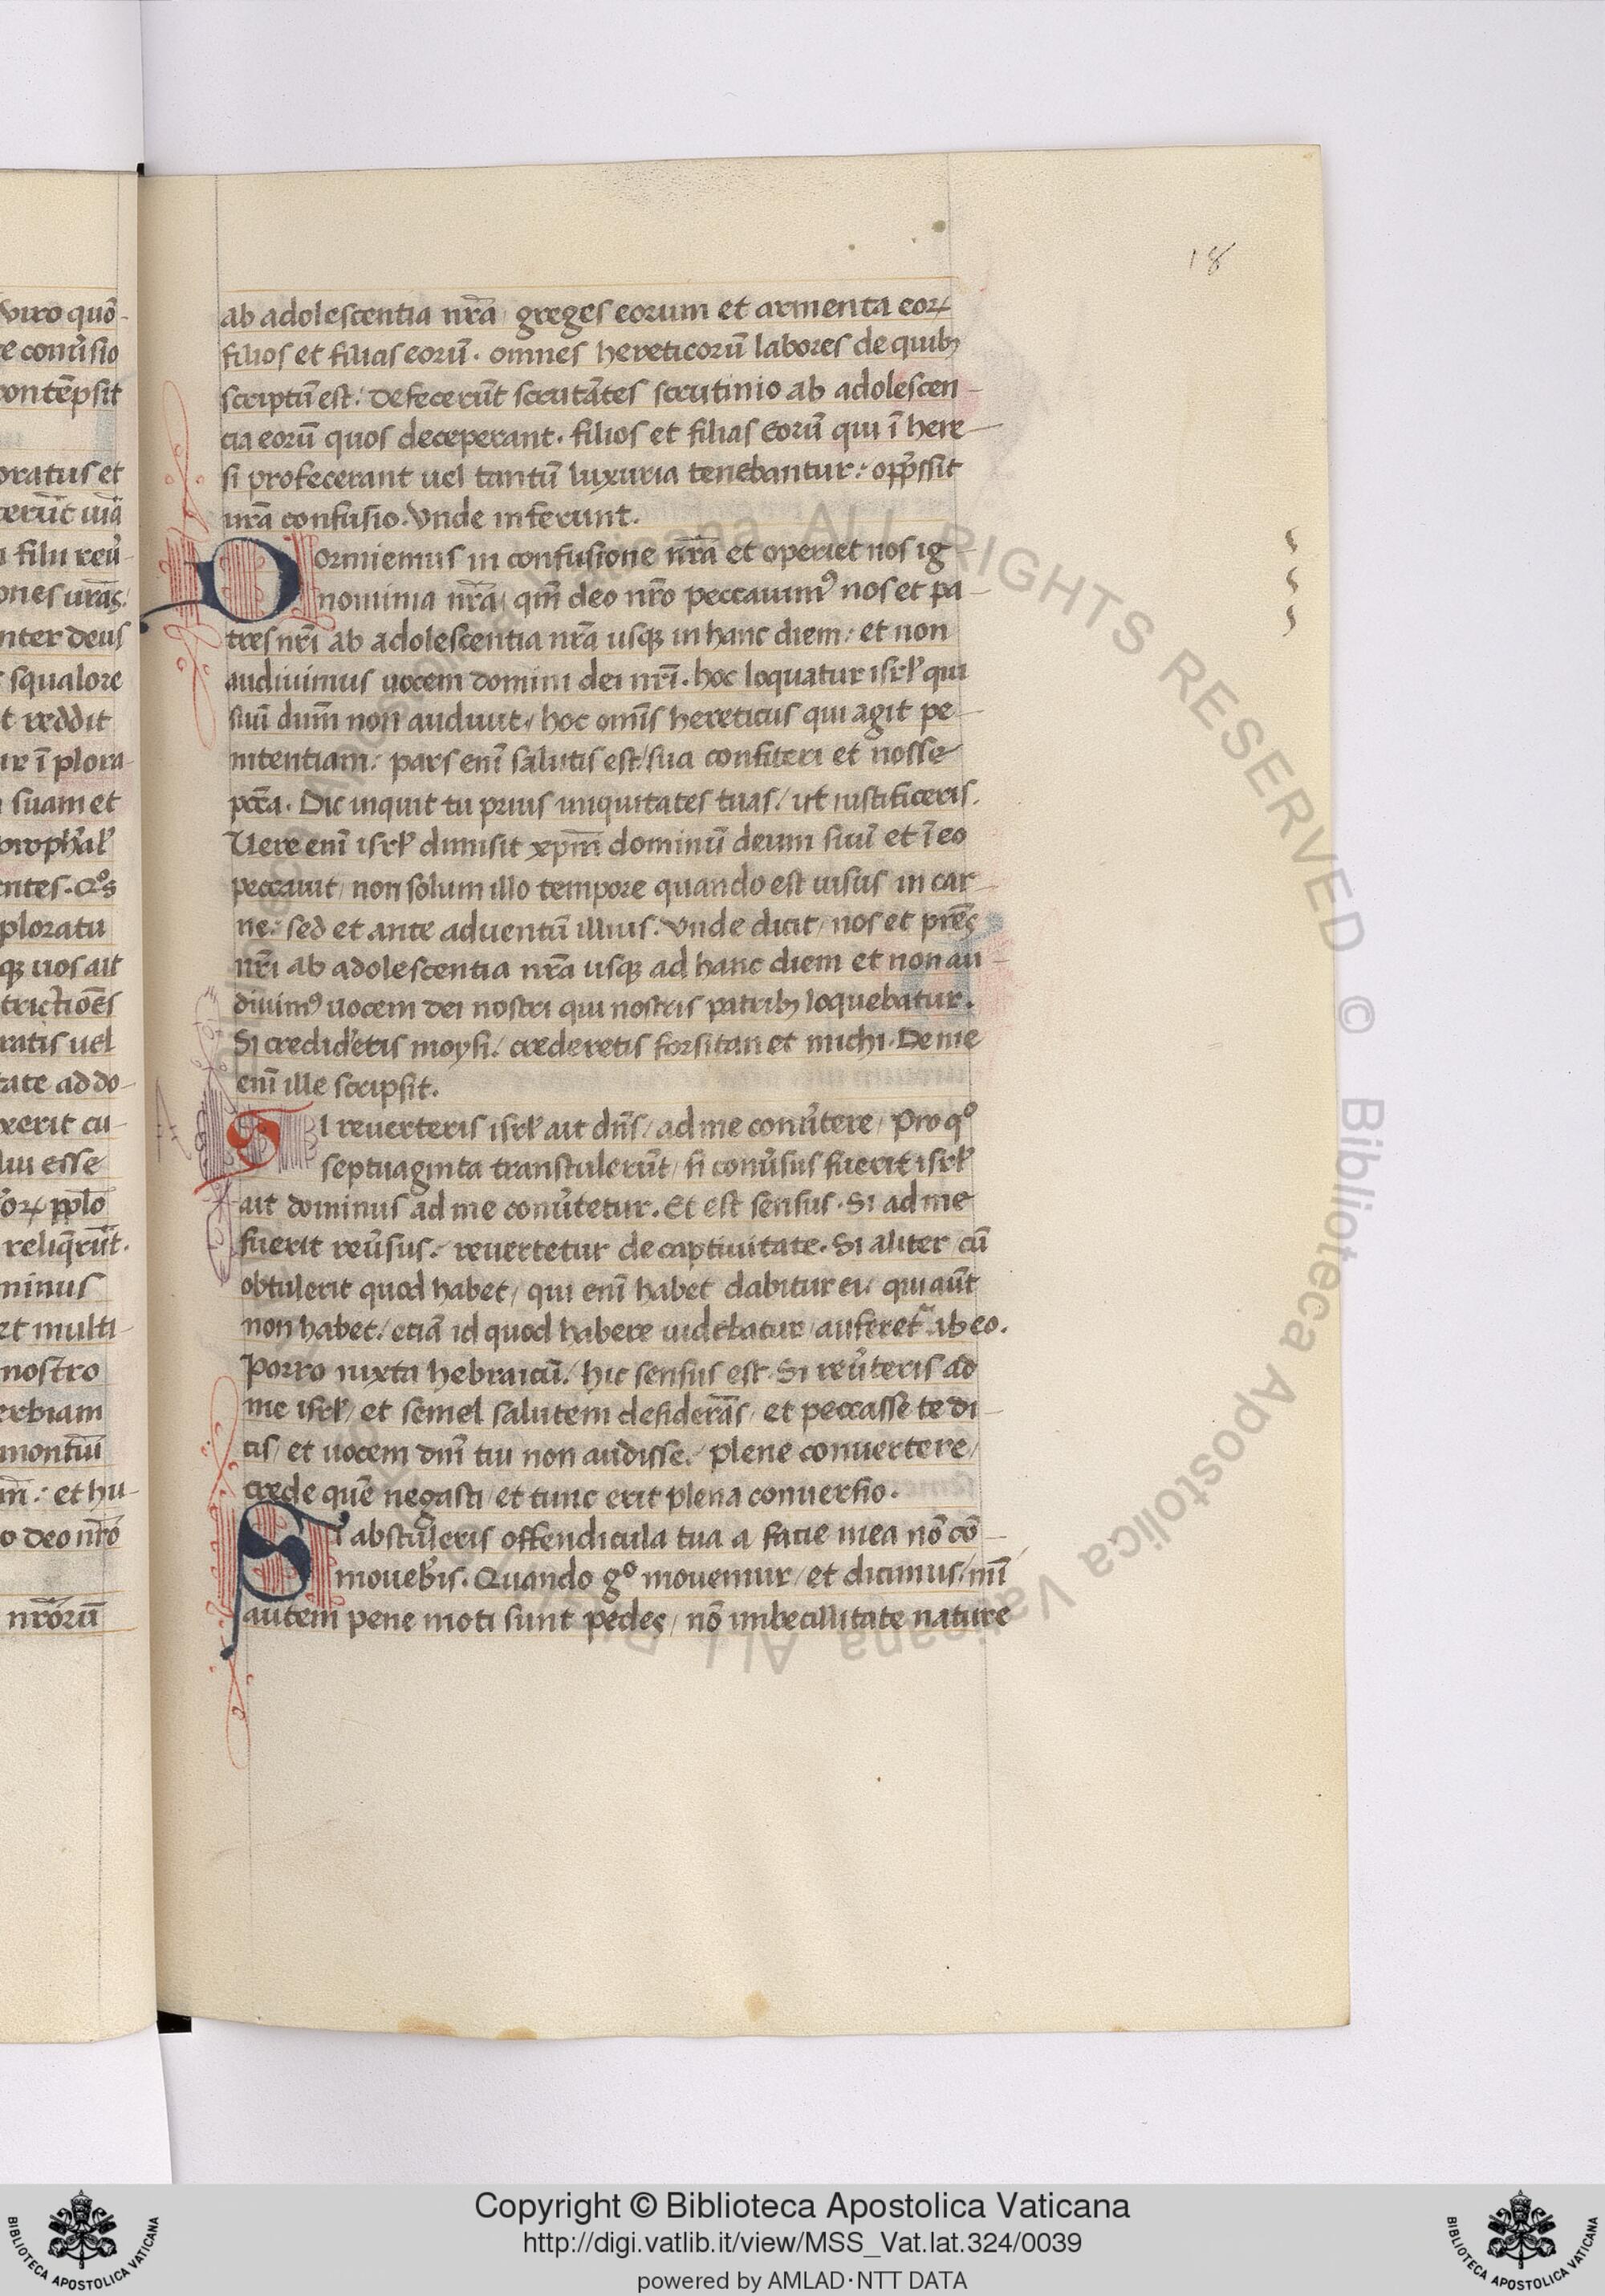 viro quō-
e conūsio
contēpsit
oratus et
cerūt uiā
filii reū-
ones urās:
nter deus
squalore
t reddit
ur ī plora-
suam et
prophal'
entes. Qos
ploratu
q3 uos ait
trictiōēs
ratis uel
tate ad do-
xerit cu-
lui esse
or℞ pplo
reliq̄rūt.
minus
et multi-
nostro
erbiam
montiū
m̄: et hu-
o deo nr̄o
nr̄orū
18
ab adolescentia nr̄a, greges eorum et armenta eor℞
filios et filias eorū. omnes hereticorū labores de quib3
scriptū est: defecerūt scrutātes scrutinio ab adolescen-
tia eorū quos deceperant. filios et filias eorū qui ī here-
si profecerant uel tantū luxuria tenebantur: opp̄ssit
nr̄a confusio. Vnde inferunt.
Dormiemus in confusione nr̄a et operiet nos ig-
nominia nr̄a, qm̄ deo nr̄o peccauim9 nos et pa-
tres nr̄i ab adolescentia nr̄a usq3 in hanc diem: et non
audiuimus uocem domini dei nr̄i. hoc loquatur isrl' qui
suū dum̄ non audiuit, hoc omīs hereticus qui agit pe-
nitentiam: pars enī salutis est, sua confiteri et nosse
pcc̄a. Dic inquit tu prius iniquitates tuas, ut iustificeris.
Uere enī isrl' dimisit xpm̄ dominū deum suū et ī eo
peccauit, non solum illo tempore quando est uisus in car-
ne: sed et ante aduentū illius. Vnde dicit, nos et pr̄es
nr̄i ab adolescentia nr̄a usq3 ad hanc diem et non au-
diuim9 uocem dei nostri qui nostris patrib3 loquebatur.
Si credid'etis moysi, crederetis forsitan et michi. De me
enī ille scripsit.
SI reuerteris isrl' ait dn̄s, ad me conūtere, Pro qo
septuaginta transtulerūt, si conūsus fuerit isrl'
ait dominus ad me conūtetur. Et est sensus. Si ad me
fuerit reūsus: reuertetur de captiuitate. Si aliter, cū
obtulerit quod habet, qui enī habet dabitur ei, qui aūt
non habet, etiā id quod habere uidebatur, auferet^r ab eo.
Porro iuxta hebraicū, hic sensus est. Si reūteris ad
me isrl', et semel salutem desiderās, et peccasse te di-
cis, et uocem dnī tui non audisse, plene conuertere,
crede quē negasti, et tunc erit plena conuersio.
SI abstūleris offendicula tua a facie mea nō cō-
moueb'is. Quando go mouemur, et dicimus, mī
autem pene moti sunt pedes, nō imbecillitate nature
Copyright © Biblioteca Apostolica Vaticana
http://digi.vatlib.it/view/MSS_Vat.lat.324/0039
powered by AMLAD·NTT DATA
BIBLIOTECA APOSTOLICA VATICANA
BIBLIOTECA APOSTOLICA VATICANA
ALL RIGHTS RESERVED © Biblioteca Apostolica Vaticana